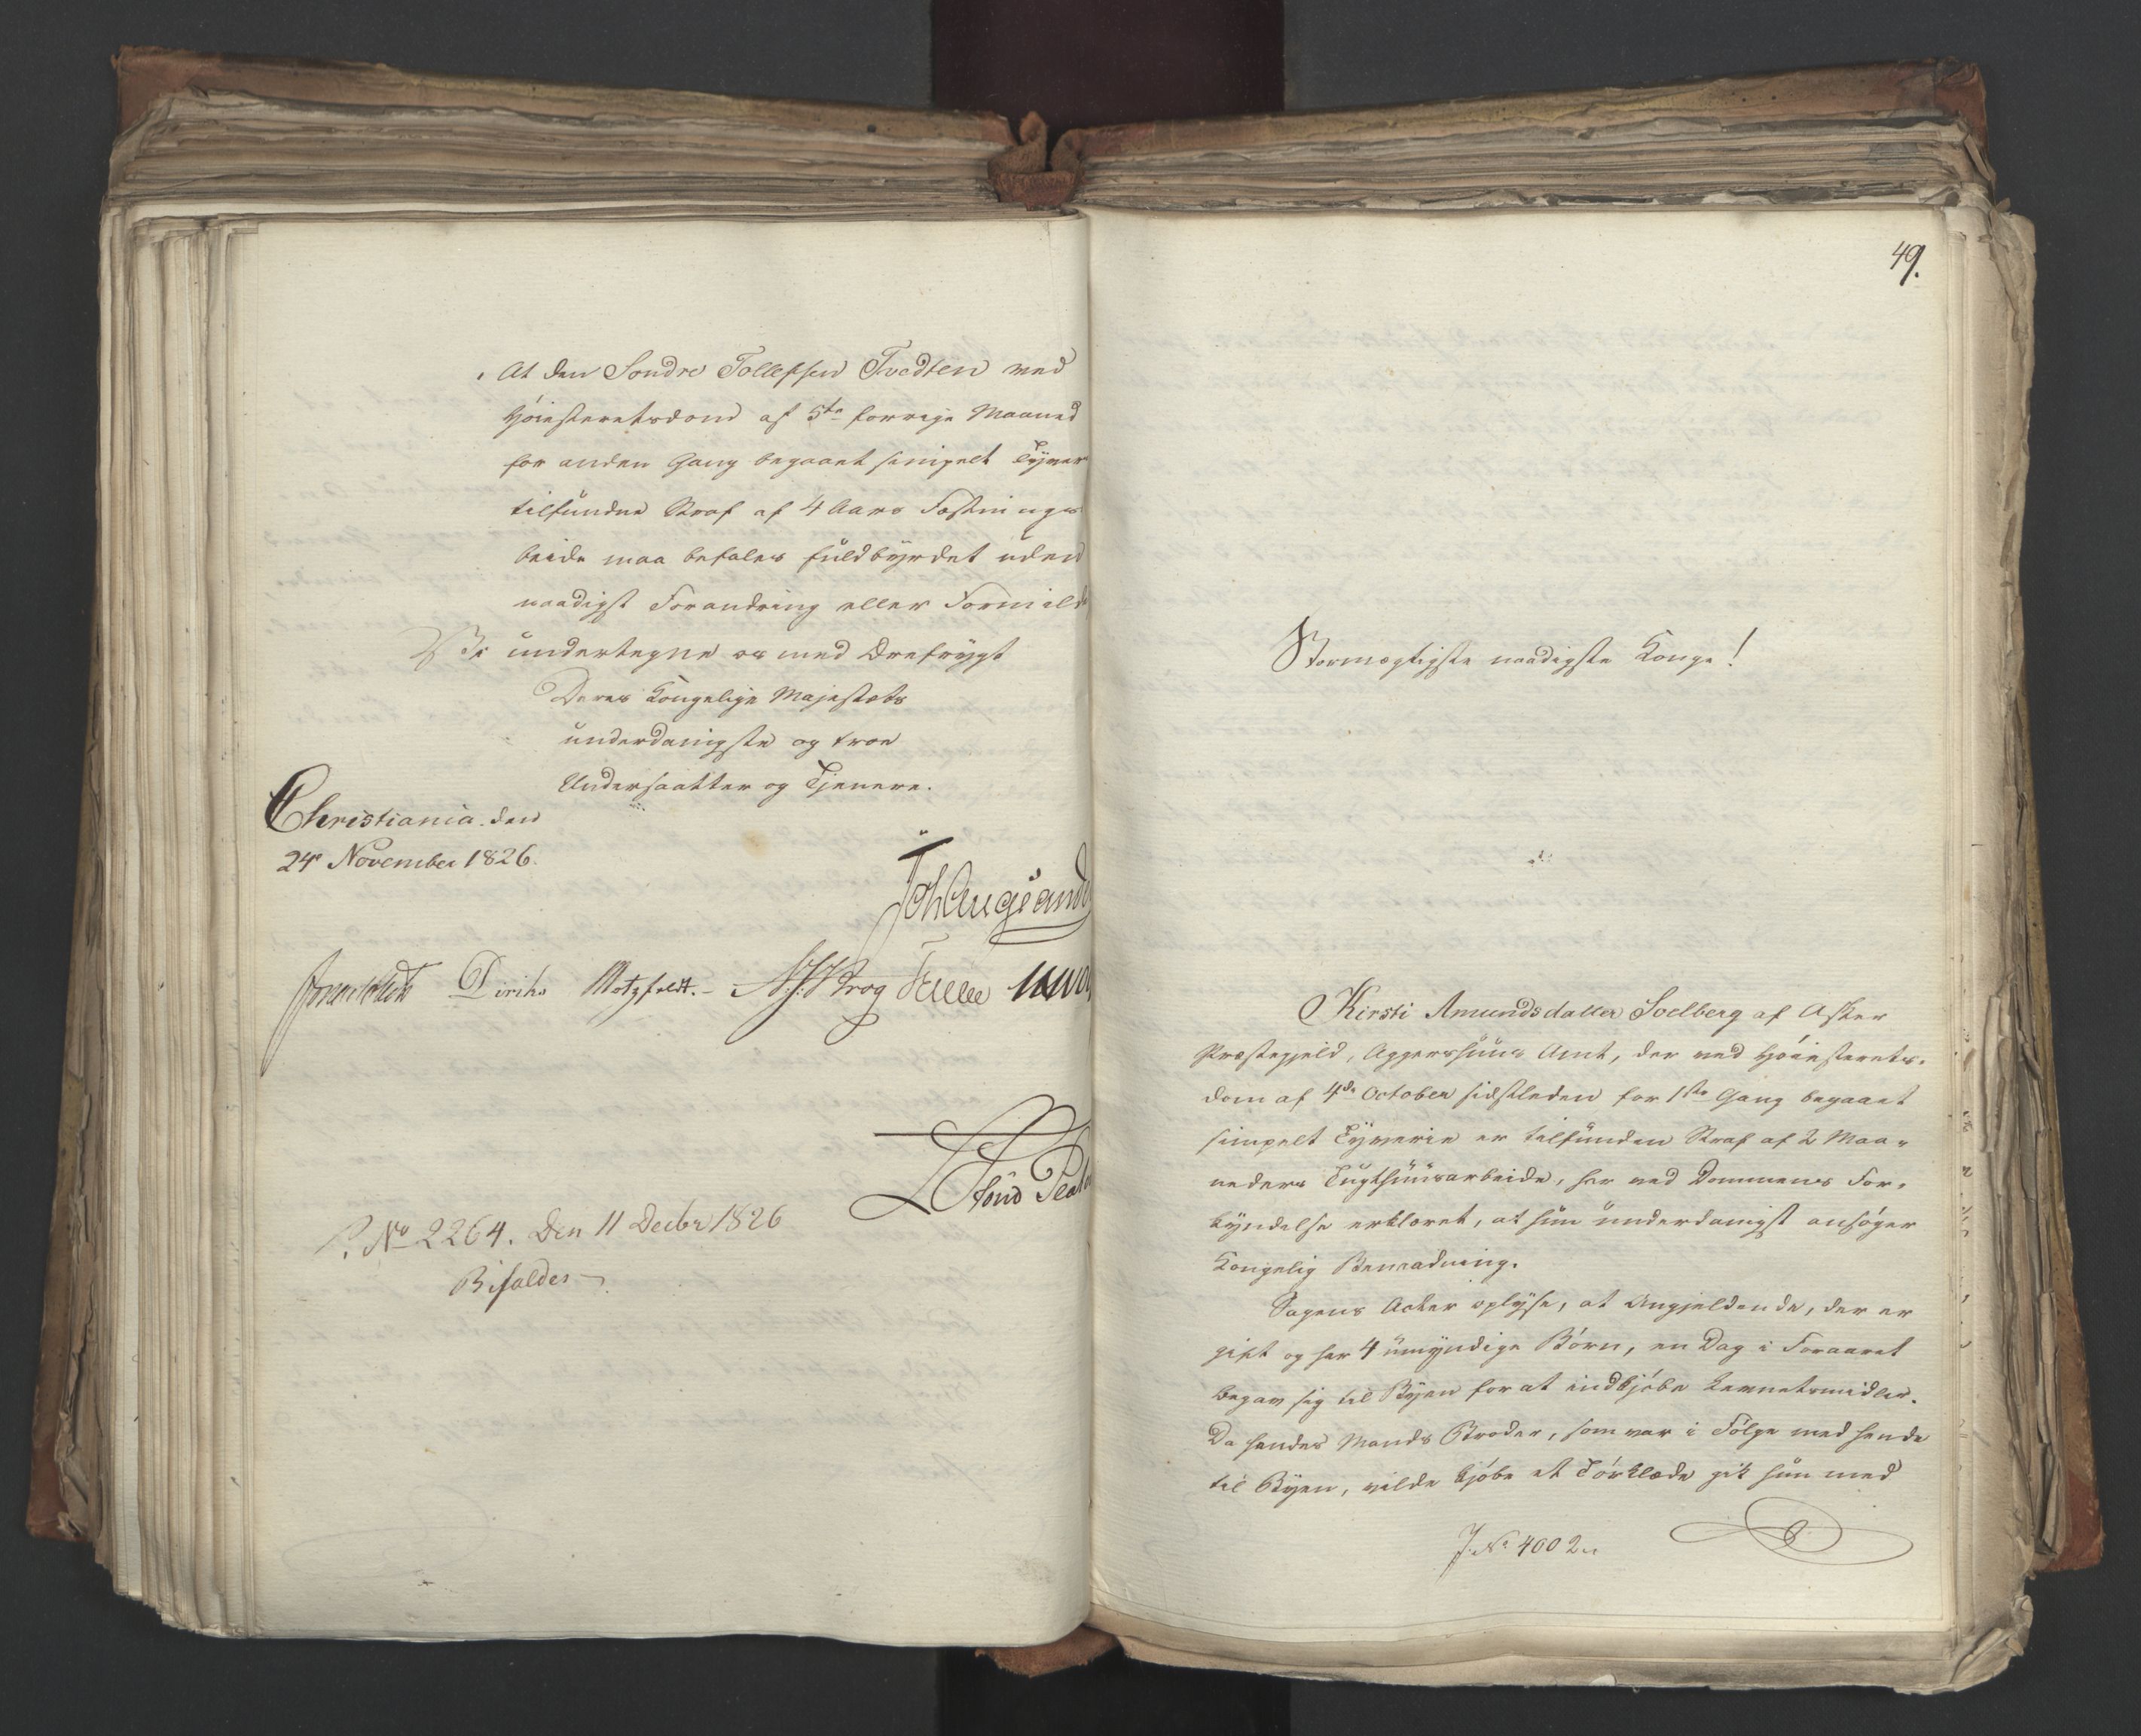 At den Sondre Tollefsen Tvedten ved
Höiesteretsdom af 5te forrige Maaned
for anden Gang begaaet simpelt Tyver
tilfundne Straf af 4 Aars Fæstnings
beide maa befales fuldbyrdet uden
naadigst Forandring eller Formild
Vi undertegne os med Ærefrygt
Deres Kongelige Majestæts
underdanigste og troe
Undersaatter og Tjenere.
Christiania den
24e November 1826.
Diriks Motzfeldt. Krog
P. No 2264. Den 11 Decbr 1826
Bifaldes
49.
Stormægtigste naadigste Konge!
Kirsti Amundsdatter Soelberg af Asker
Præstegjeld, Aggershuus Amt, der ved Höiesterets-
dom af 4de October sidstleden for 1ste Gang begaaet
simpelt Tyverie er tilfunden Straf af 2 Maa-
neders Tugthuusarbeide, har ved Dommens For-
kyndelse erklæret, at hun underdanigst ansöger
Kongelig Benaadning.
Sagens Acter oplyse, at Angjeldende, der er
gift og har 4 umyndige Börn, en Dag i Foraaret
begav sig til Byen for at indkjöbe Levnetsmidler.
Da hendes Mands Broder, som var i Fölge med hende
til Byen, vilde kjöbe et Törklæde gik hun med
J. No 4002